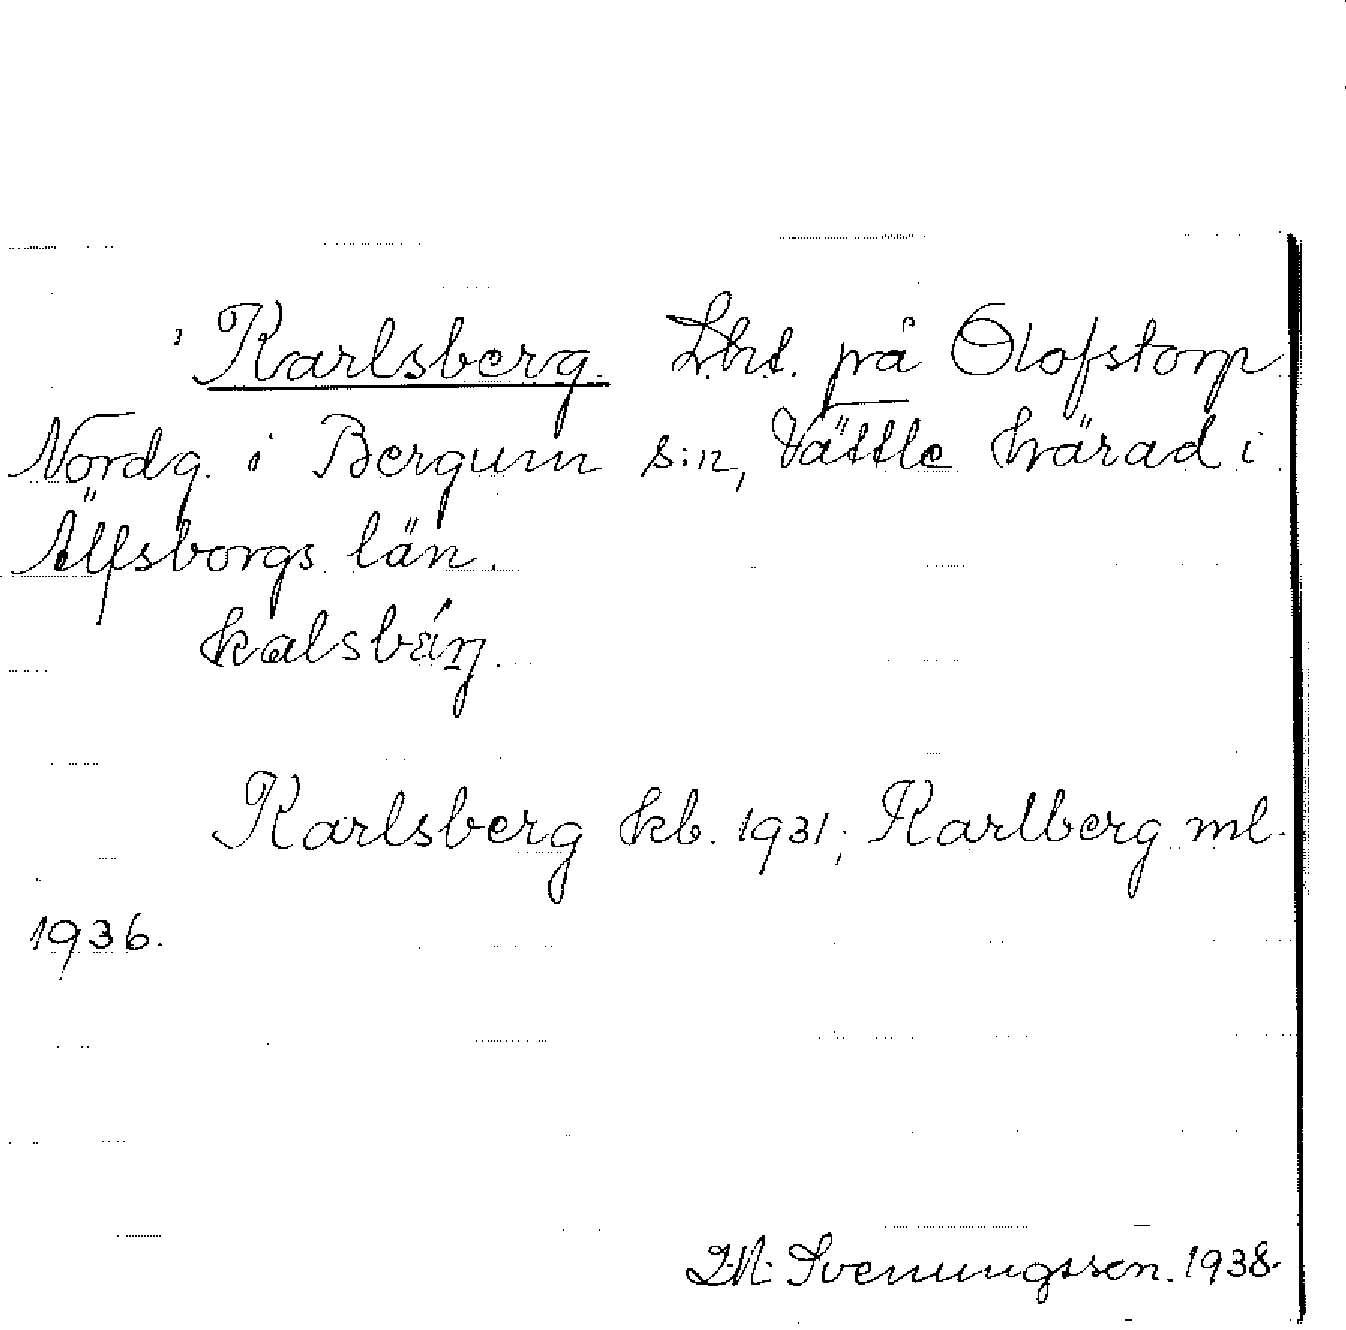 Karlsberg. Lht. på Olofstorp
Nordg. i Bergum s:n, Vättle härad i
Älfsborgs län.
Karlsberg kb. 1931; Karlberg ml.
1936.
Svenungsson. 1938.